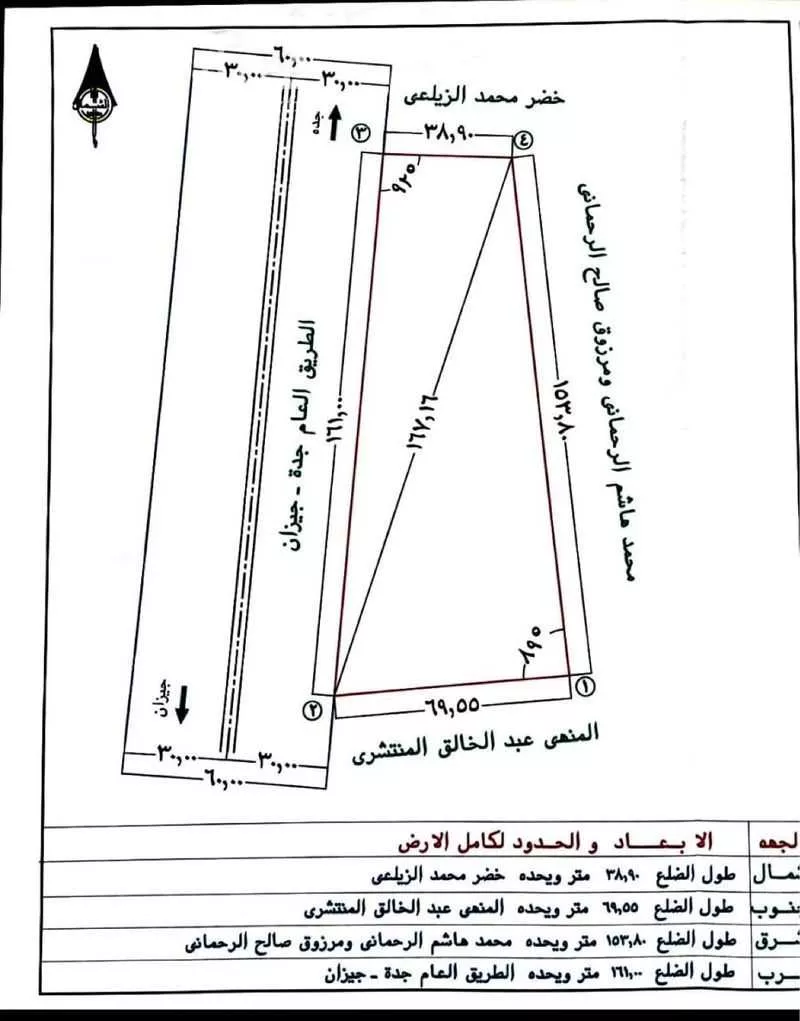 ٦٠,٠٠
٣٠,٠٠ ٣٠,٠٠
خضر محمد الزيلعى
جده
٣
٣٨,٩٠
٤
٩٢٥
محمد هاشم الرحمانى ومرزوق صالح الرحمانى
الطريق العام جدة - جيزان
١٦١,٠٠
١٦٧,١٦
١٥٣,٨٠
٨٩٥
١
٢
٦٩,٥٥
المنهى عبد الخالق المنتشرى
جيزان
٣٠,٠٠ ٣٠,٠٠
٦٠,٠٠
لجهه الابعاد و الحدود لكامل الارض
شمال طول الضلع ٣٨,٩٠ متر ويحده خضر محمد الزيلعى
جنوب طول الضلع ٦٩,٥٥ متر ويحده المنهى عبد الخالق المنتشرى
شرق طول الضلع ١٥٣,٨٠ متر ويحده محمد هاشم الرحمانى ومرزوق صالح الرحمانى
رب طول الضلع ١٦١,٠٠ متر ويحده الطريق العام جدة - جيزان